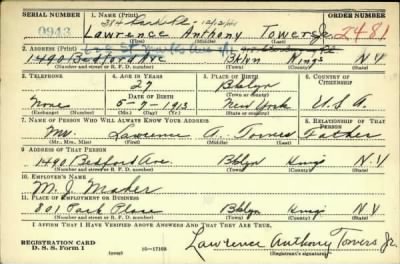 SERIAL NUMBER 1. NAME (Print) ORDER NUMBER
384 Park Pl. 12/2/44
0943 Lawrence Anthony Towers Jr. 2481
(First) (Middle) (Last)
2. ADDRESS (Print)
1490 Bedford Ave Bklyn Kings N.Y
(Number and street or R. F. D. number) (Town) (County) (State)
3. TELEPHONE 4. AGE IN YEARS 5. PLACE OF BIRTH 6. COUNTRY OF CITIZENSHIP
27 Bklyn
DATE OF BIRTH (Town or county)
None 5-7-1913 New York U.S.A.
(Exchange) (Number) (Mo.) (Day) (Yr.) (State or country)
7. NAME OF PERSON WHO WILL ALWAYS KNOW YOUR ADDRESS 8. RELATIONSHIP OF THAT PERSON
Mr Lawrence A. Towers Father
(Mr., Mrs., Miss) (First) (Middle) (Last)
9. ADDRESS OF THAT PERSON
1490 Bedford Ave. Bklyn Kings N.Y
(Number and street or R. F. D. number) (Town) (County) (State)
10. EMPLOYER'S NAME
M. J. Maher
11. PLACE OF EMPLOYMENT OR BUSINESS
801 Park Place Bklyn Kings N.Y
(Number and street or R. F. D. number) (Town) (County) (State)
I AFFIRM THAT I HAVE VERIFIED ABOVE ANSWERS AND THAT THEY ARE TRUE.
REGISTRATION CARD
D. S. S. Form 1 (over) 16-17105 Lawrence Anthony Towers Jr.
(Registrant's signature)